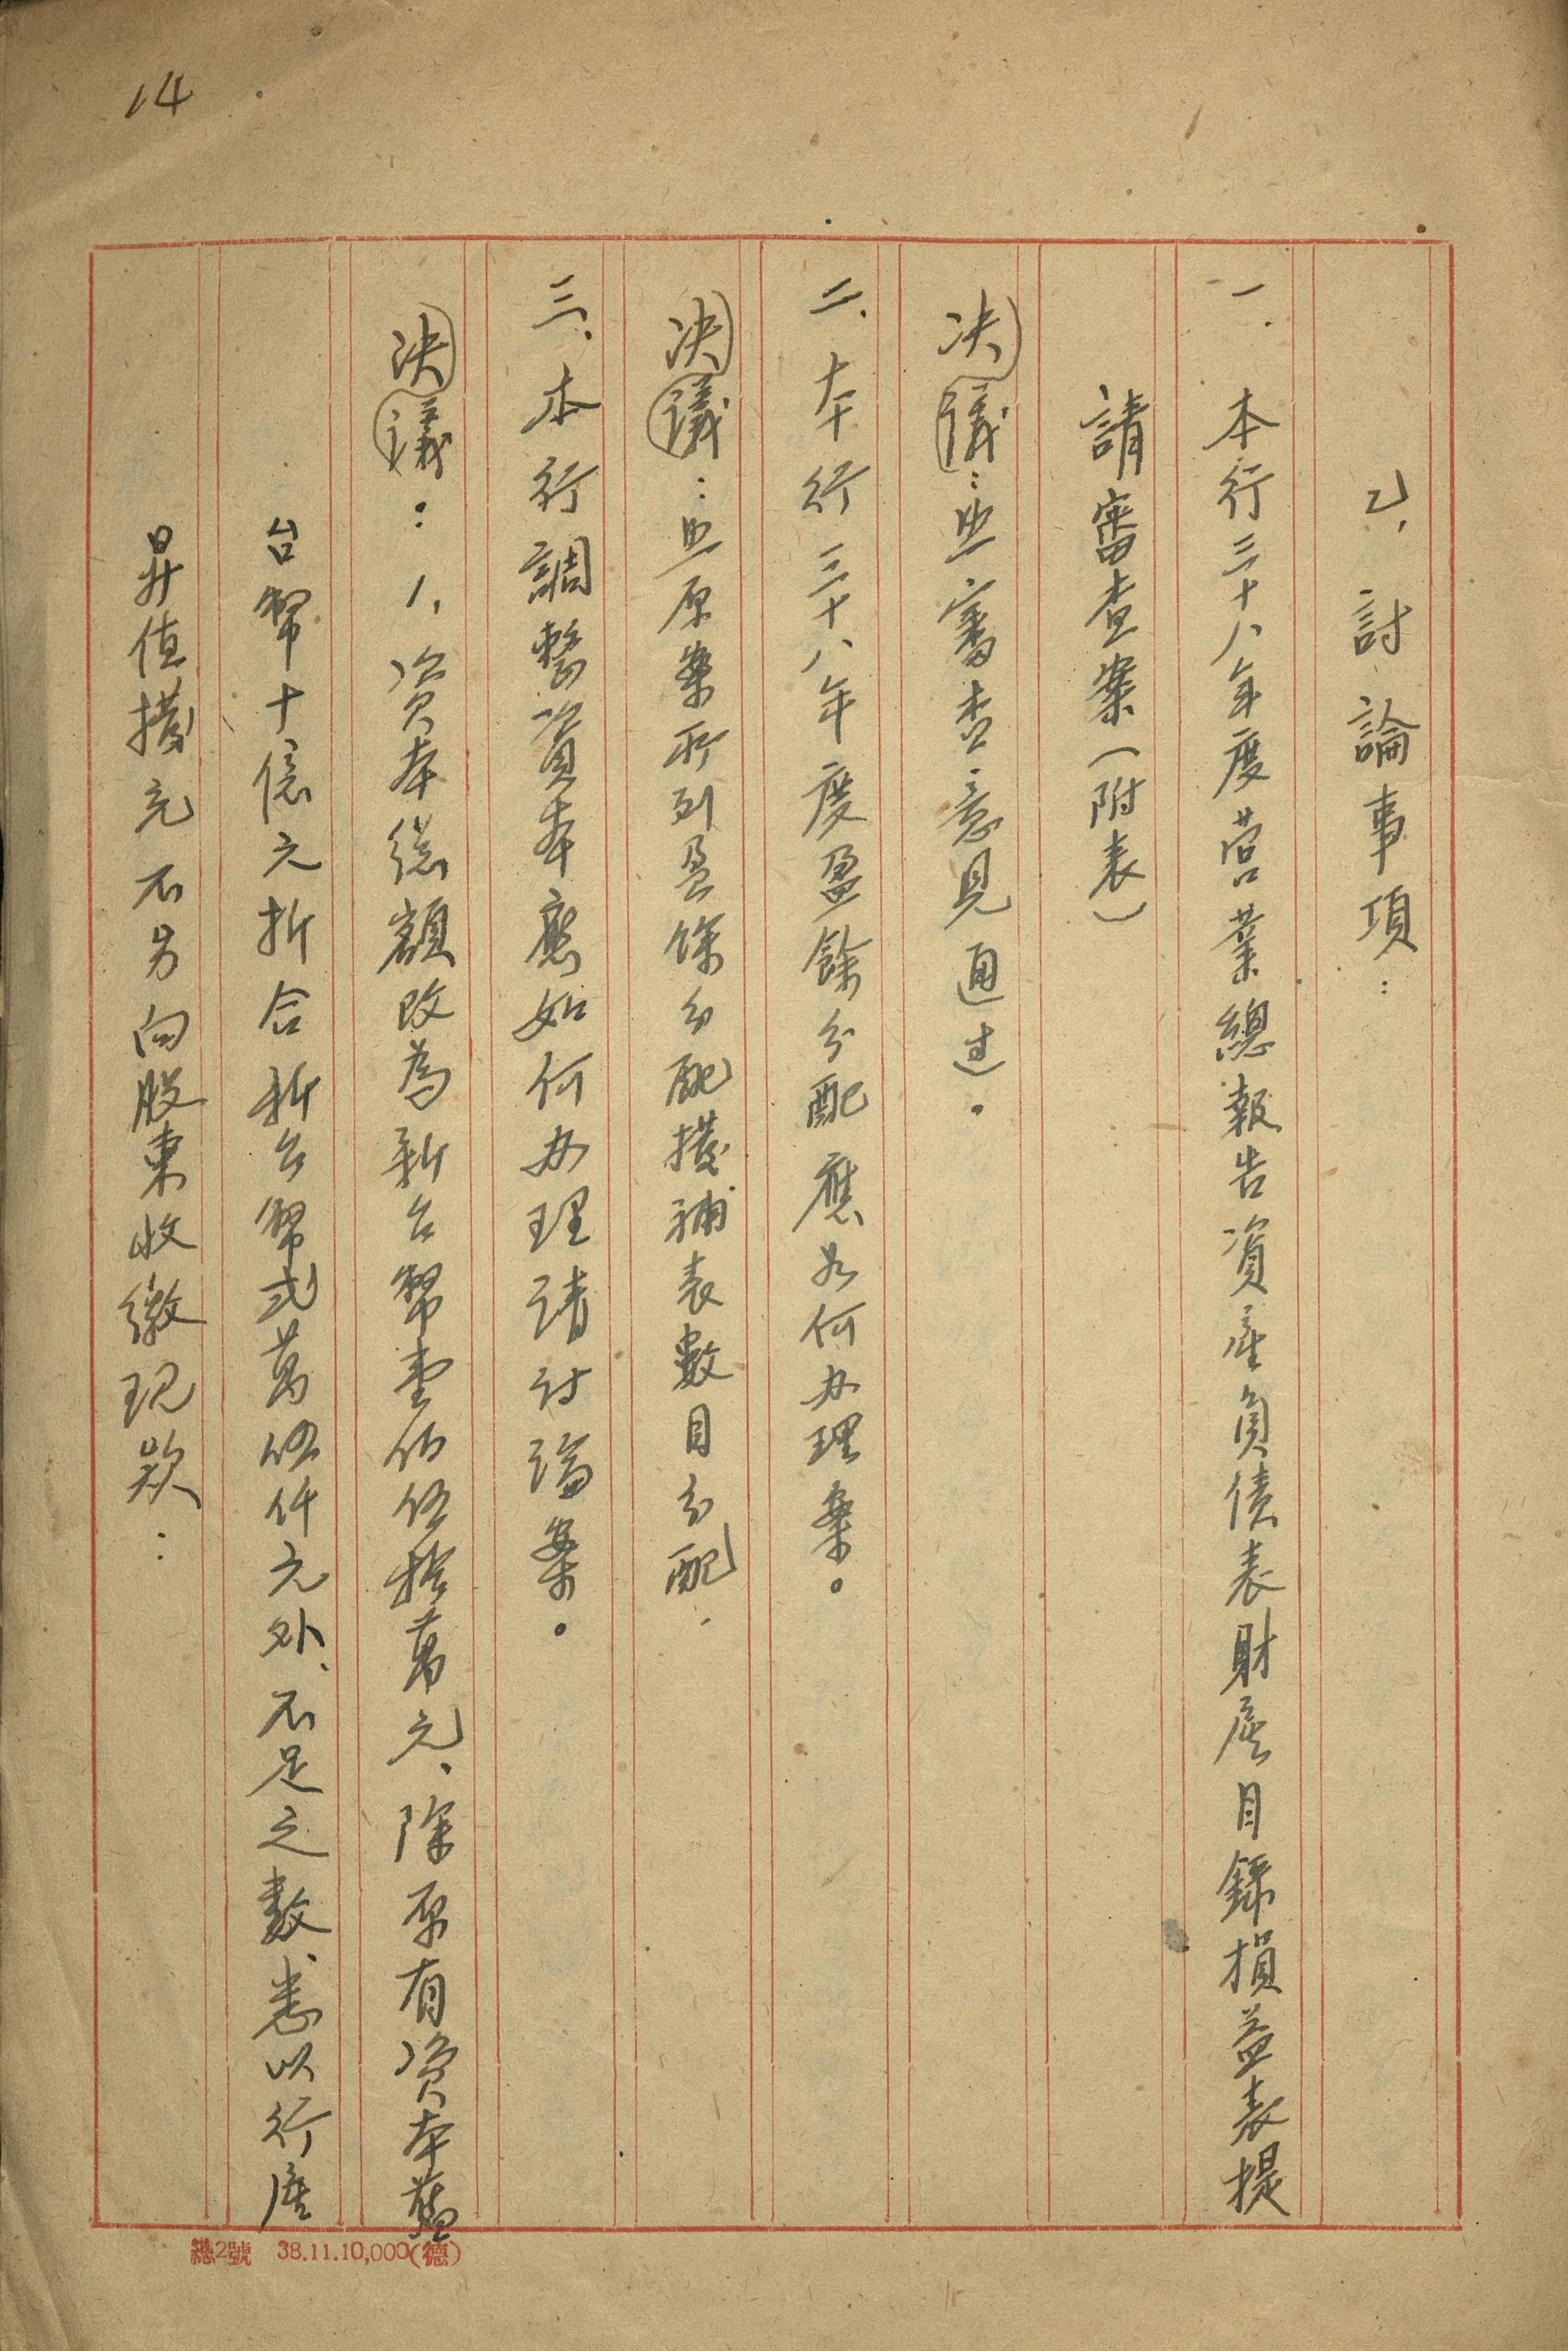 14
乙、討論事項：
一、本行三十八年度营業總報告資產負债表財產目錄損益表提
請審查案（附表）
决議：照審查意見通过。
二、本行三十八年度盈餘分配應如何办理案。
决議：照原案所列盈餘分配撥補表數目分配.
三、本行調整資本應如何办理請讨論案。
决議：1、資本總額改為新台幣壹佰伍拾萬元、除原有資本舊
台幣十億元折合新台幣弍萬伍仟元外、不足之數悉以行產
昇值撥充不另向股東收繳现款：
總2號 38.11.10,000(德)